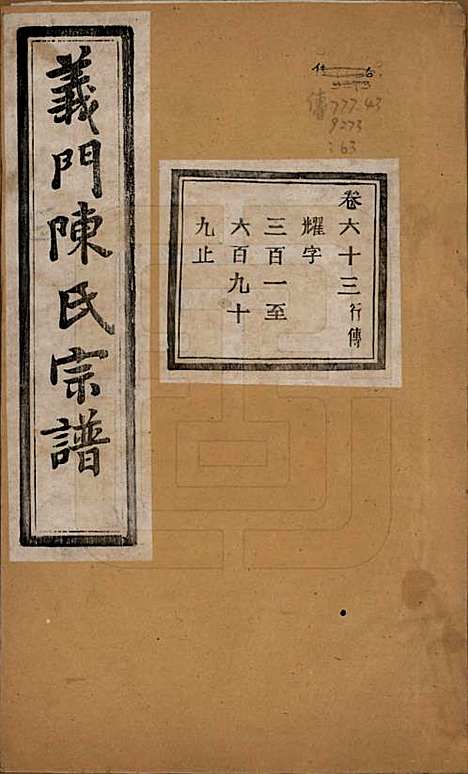 義門陳氏宗譜
卷六十三行傳
耀字
三百一至
六百九十
九止
傳777.43
9273
:63